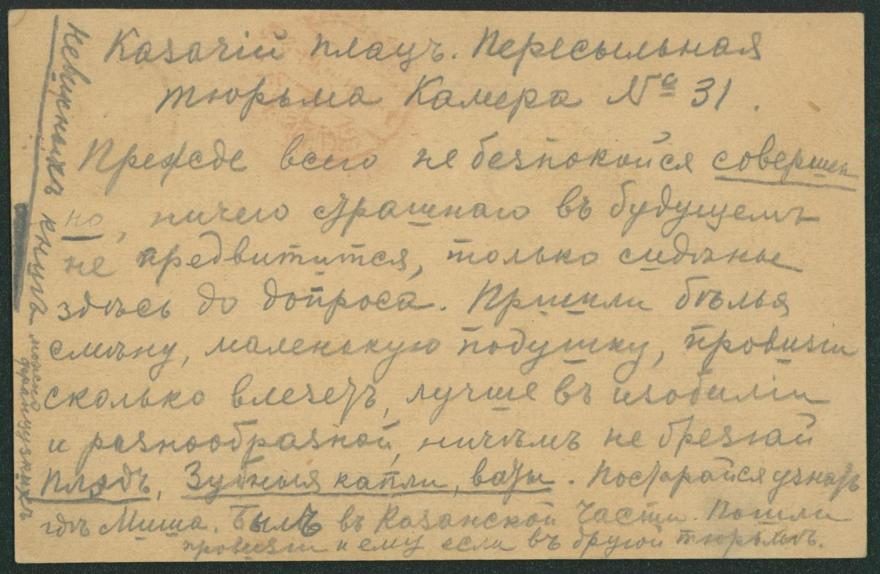 Казачій плацъ. Пересыльная
тюрьма Камера № 31.
Прежде всего не безпокойся совершен
но, ничего страшнаго въ будущемъ
не предвитится, только сидѣнье
здѣсь до допроса. Пришли бѣлья
смѣну, маленькую подушку, провизіи
сколько влезетъ, лучше въ изобиліи
и разнообразной, ничѣмъ не брезгай
Пледъ, Зубныя капли, ваты. Постарайся узнать
гдѣ Миша. Былъ въ Казанской части. Пошли
провизіи и ему если въ другой тюрьмѣ.
ненужныхъ книгъ можно
французскихъ